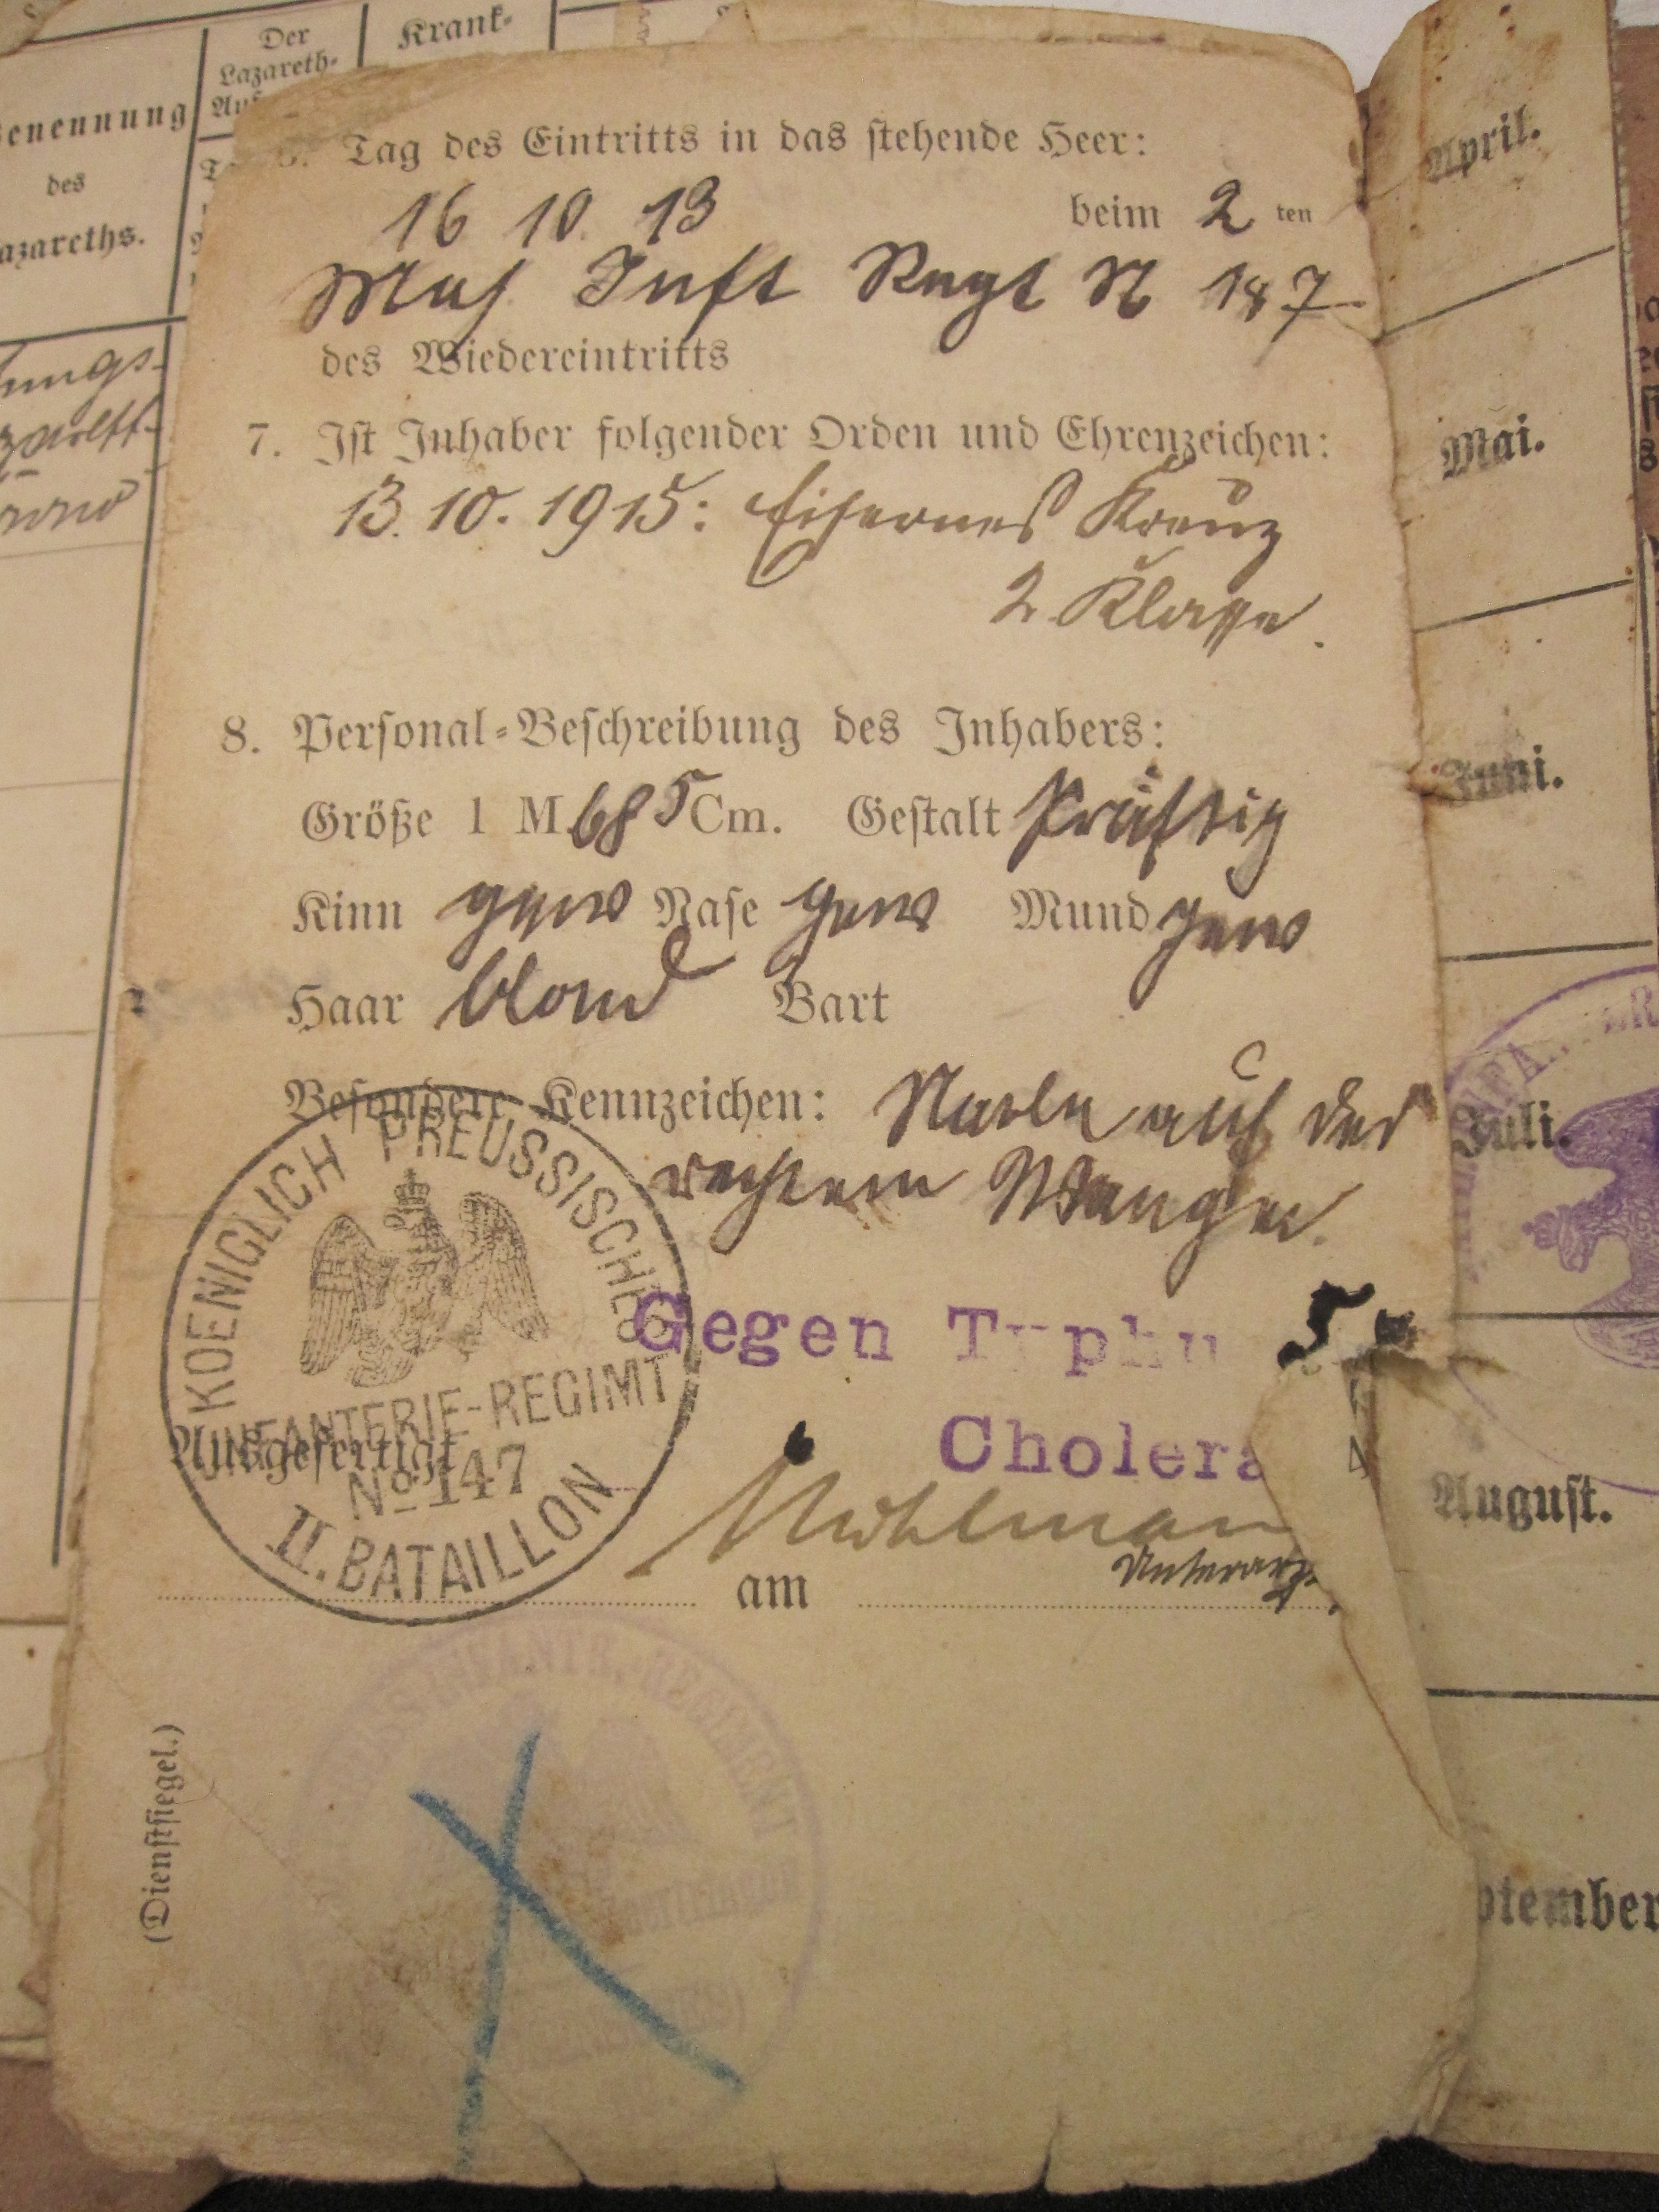 enennung
des
azareths.
Der
Lazareth-
Krank-
6. Tag des Eintritts in das stehende Heer:
16 10. 13 beim 2 ten
Mas Inft Regt N 147
des Wiedereintritts
7. Ist Inhaber folgender Orden und Ehrenzeichen:
13. 10. 1915: Eisernes Kreuz
2. Klasse.
8. Personal-Beschreibung des Inhabers:
Größe 1 M 68 5 Cm. Gestalt kräftig
Kinn gew Nase gew Mund gew
Haar blond Bart
Besondere Kennzeichen: Narbe auf der
rechten Wange.
KOENIGLICH PREUSSISCHES
INFANTERIE-REGIMT
No 147
II. BATAILLON
Gegen Typhu 5
Cholera
Ausgefertigt
Unterarzt.
am
(Dienstsiegel.)
INFANTR. REGIMENT
April.
Mai.
Juni.
Juli.
August.
ptember